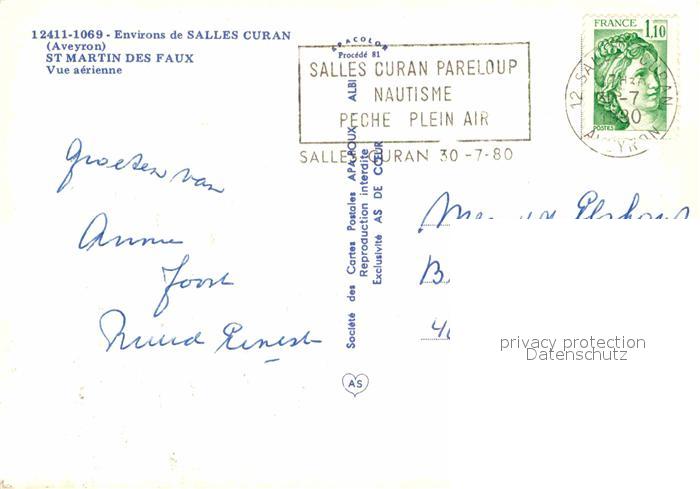 12411-1069 - Environs de SALLES CURAN
(Aveyron)
ST MARTIN DES FAUX
Vue aérienne
APACOLOR
Procédé 81
SALLES CURAN PARELOUP
NAUTISME
PECHE PLEIN AIR
SALLES CURAN 30-7-80
FRANCE 1,10
POSTES
12 SALLES CURAN
30-7
80
AVEYRON
Groeten van
Annie
Joost
Ruud Ernest
Société des Cartes Postales APA-POUX ALBI
Reproduction interdite
Exclusivité AS DE CŒUR
AS
B.
privacy protection
Datenschutz